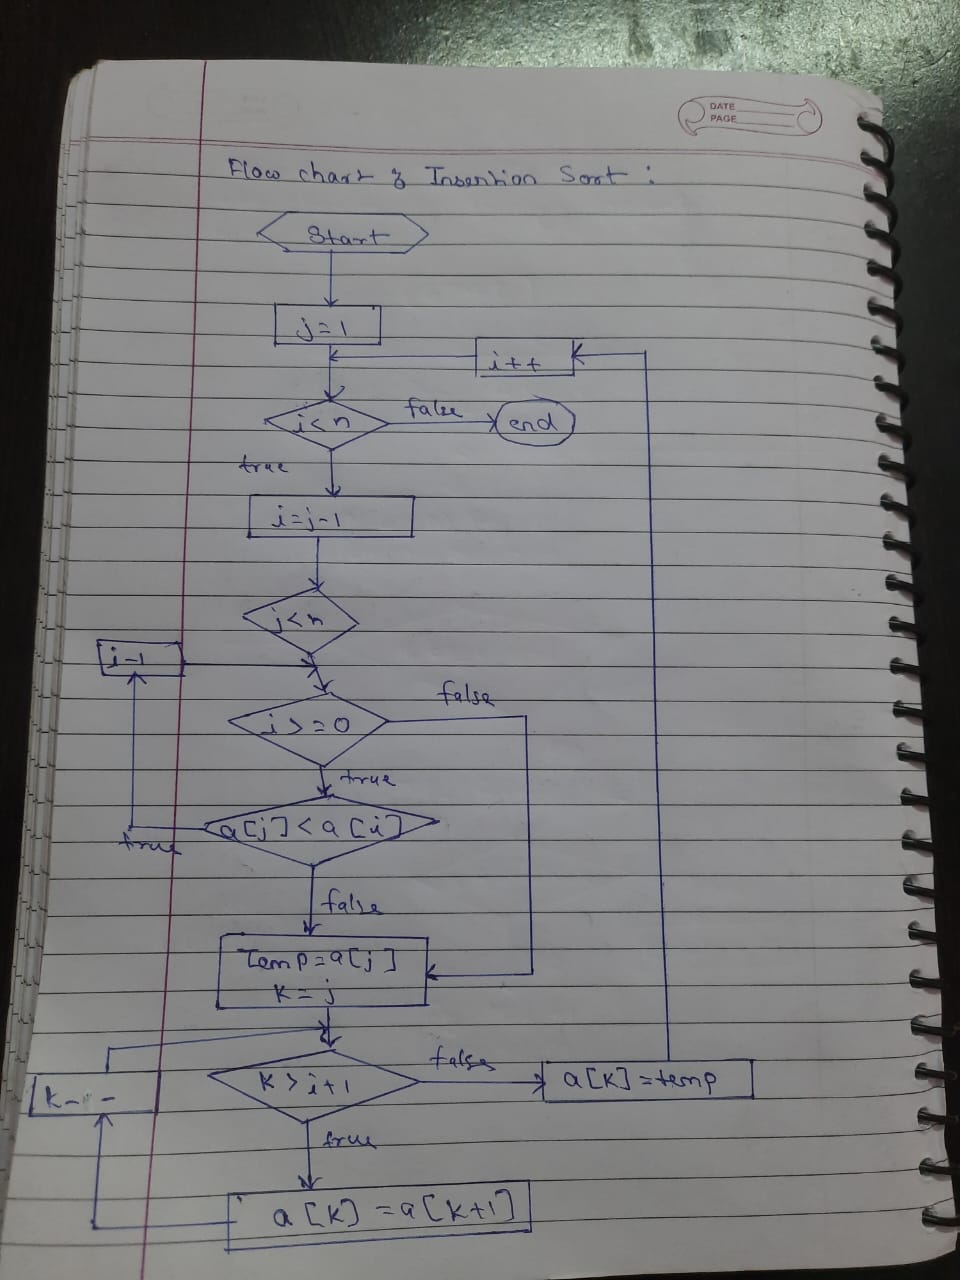 DATE
PAGE
Flow chart of Insertion Sort :
Start
j=1
i++
i<n
false
end
true
i=j-1
j<n
i-1
i>=0
false
true
a[j]<a[i]
true
false
Temp=a[j]
K=j
K>i+1
false
a[K]=temp
K--
true
a[K]=a[K+1]